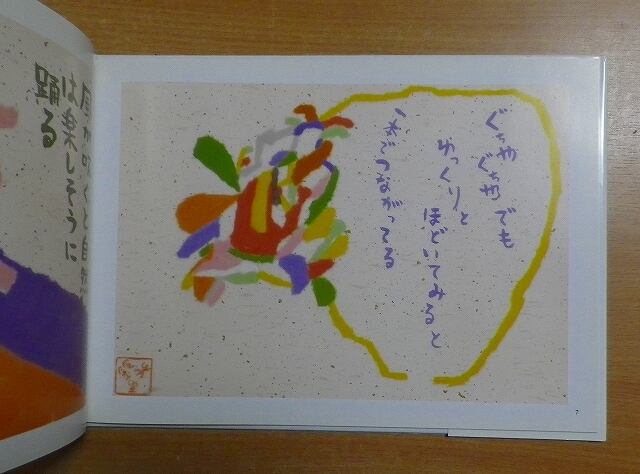 が吹くと自然
は楽しそうに
踊る
ぐちゃぐちゃでも
ゆっくりとほどいてみると
でつながってる
7